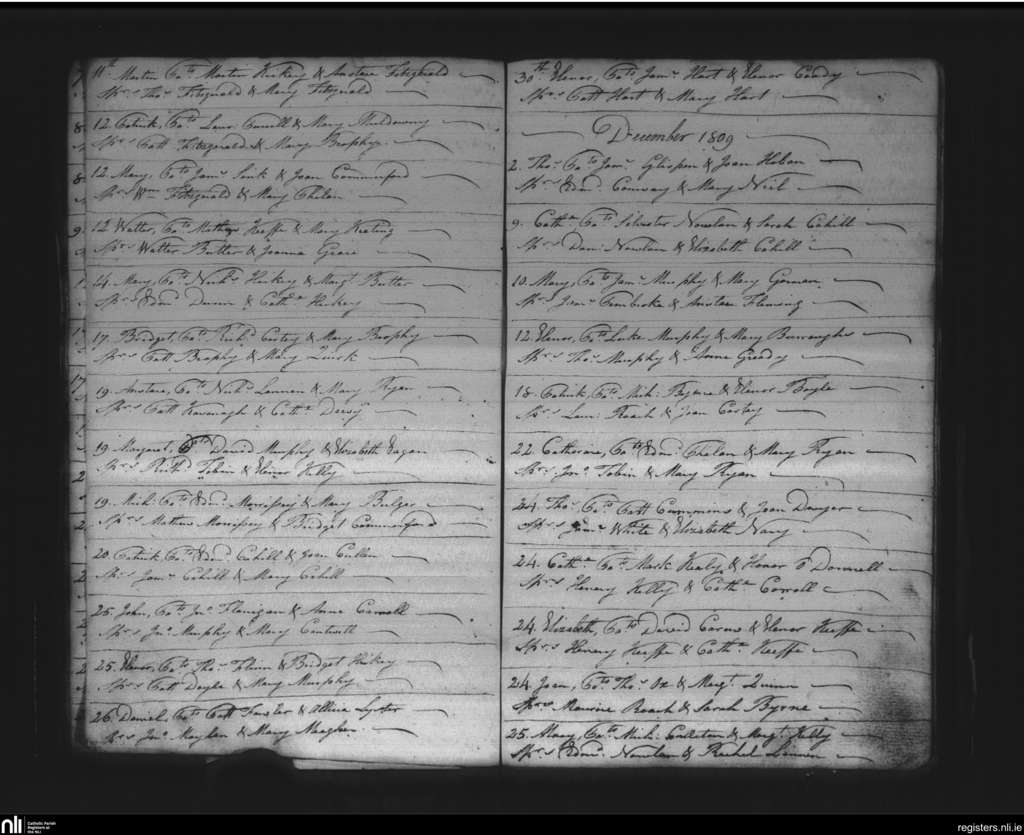 11th Martin, Co: Ts Martin Hickey & Anstace Fitzgerald
Spr.s Tho.s Fitzgerald & Mary Fitzgerald
12. Patrick, Co: Ts Laur: & Mary Muldowny
Spr.s Patt Fitzgerald & Mary Brophy
12. Mary, Co: Ts Jam.s & Joan Commerford
Spr.s Wm Fitzgerald & Mary Phelan
12 Walter, Co: Ts Mathew Keeffe & Mary Keating
Spr.s Walter Butler & Joanna Grace
14. Mary, Co: Ts Nich.s Hickey & Marg.t Butler
Spr.s Edm.d Dunn & Cath.n Hickey
17. Bridget, Co: Ts Rich.d Corley & Mary Brophy
Spr.s Patt Brophy & Mary Quirk
19. Anstace, Co: Ts Nich.s Lannan & Mary Ryan
Spr.s Patt Kavanagh & Cath.n
19. Margaret, Co: Ts David Murphy & Elizabeth Eagan
Spr.s Rich.d Tobin & Elenor Kelly
19. Mich: Co: Ts Edm.d Morrissy & Mary Bulger
Spr.s Mathew Morrissy & Bridget Commerford
20. Patrick Co: Ts Edm.d Cahill & Joan Cullen
Spr.s Jam.s Cahill & Mary Cahill
25. John, Co: Ts Jn.o Flanigan & Anne Carroll
Spr.s Jn.o Murphy & Mary Cantwell
25. Elenor, Co: Ts Tho.s & Bridget Hickey
Spr.s Patt Doyle & Mary Murphy
26. Daniel, Co: Ts Patt Fowler & Allice Lyster
Spr.s Jn.o & Mary Meagher
30th Elenor, Co: Ts Jam.s Hart & Elenor Condy
Spr.s Patt Hart & Mary Hart
December 1809
2. Tho.s Co: Ts Jam.s & Joan Hoban
Spr.s Edm.d Conway & Mary Neil
9. Cath.n Co: Ts Silvester Nowlan & Sarah Cahill
Spr.s Dan: Nowlan & Elizabeth Cahill
10. Mary, Co: Ts Jam.s Murphy & Mary Gorman
Spr.s Jam.s Pembroke & Anstace Fleming
12. Elenor, Co: Ts Luke Murphy & Mary Burroughs
Spr.s Tho.s Murphy & Anne Grady
18. Patrick, Co: Ts Mich: Byrne & Elenor Boyle
Spr.s Laur: Roach & Joan Corley
22. Catherine, Co: Ts Edm.d Phelan & Mary Ryan
Spr.s Jn.o Tobin & Mary Ryan
24. Tho.s Co: Ts Patt Cummons & Joan
Spr.s Jam.s White & Elizabeth Nary
24. Cath.n Co: Ts Mark Healy & Honor O Donnell
Spr.s Henery Kelly & Cath.n Carroll
24. Elizabeth, Co: Ts David Carew & Elenor Keeffe
Spr.s Henery Keeffe & Cath.n Keeffe
24. Joan, Co: Ts Tho.s Ox & Marg.t Quinn
Spr.s Maurice Roach & Sarah Byrne
25. Mary, Co: Ts Mich: Carleton & Marg.t Kelly
Spr.s Edm.d Nowlan & Rachel Lannan
nli
Catholic Parish
Registers at
the NLI
registers.nli.ie